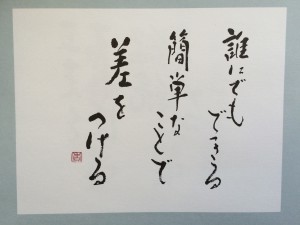 誰にでも
できる
簡単なことで
差を
つける